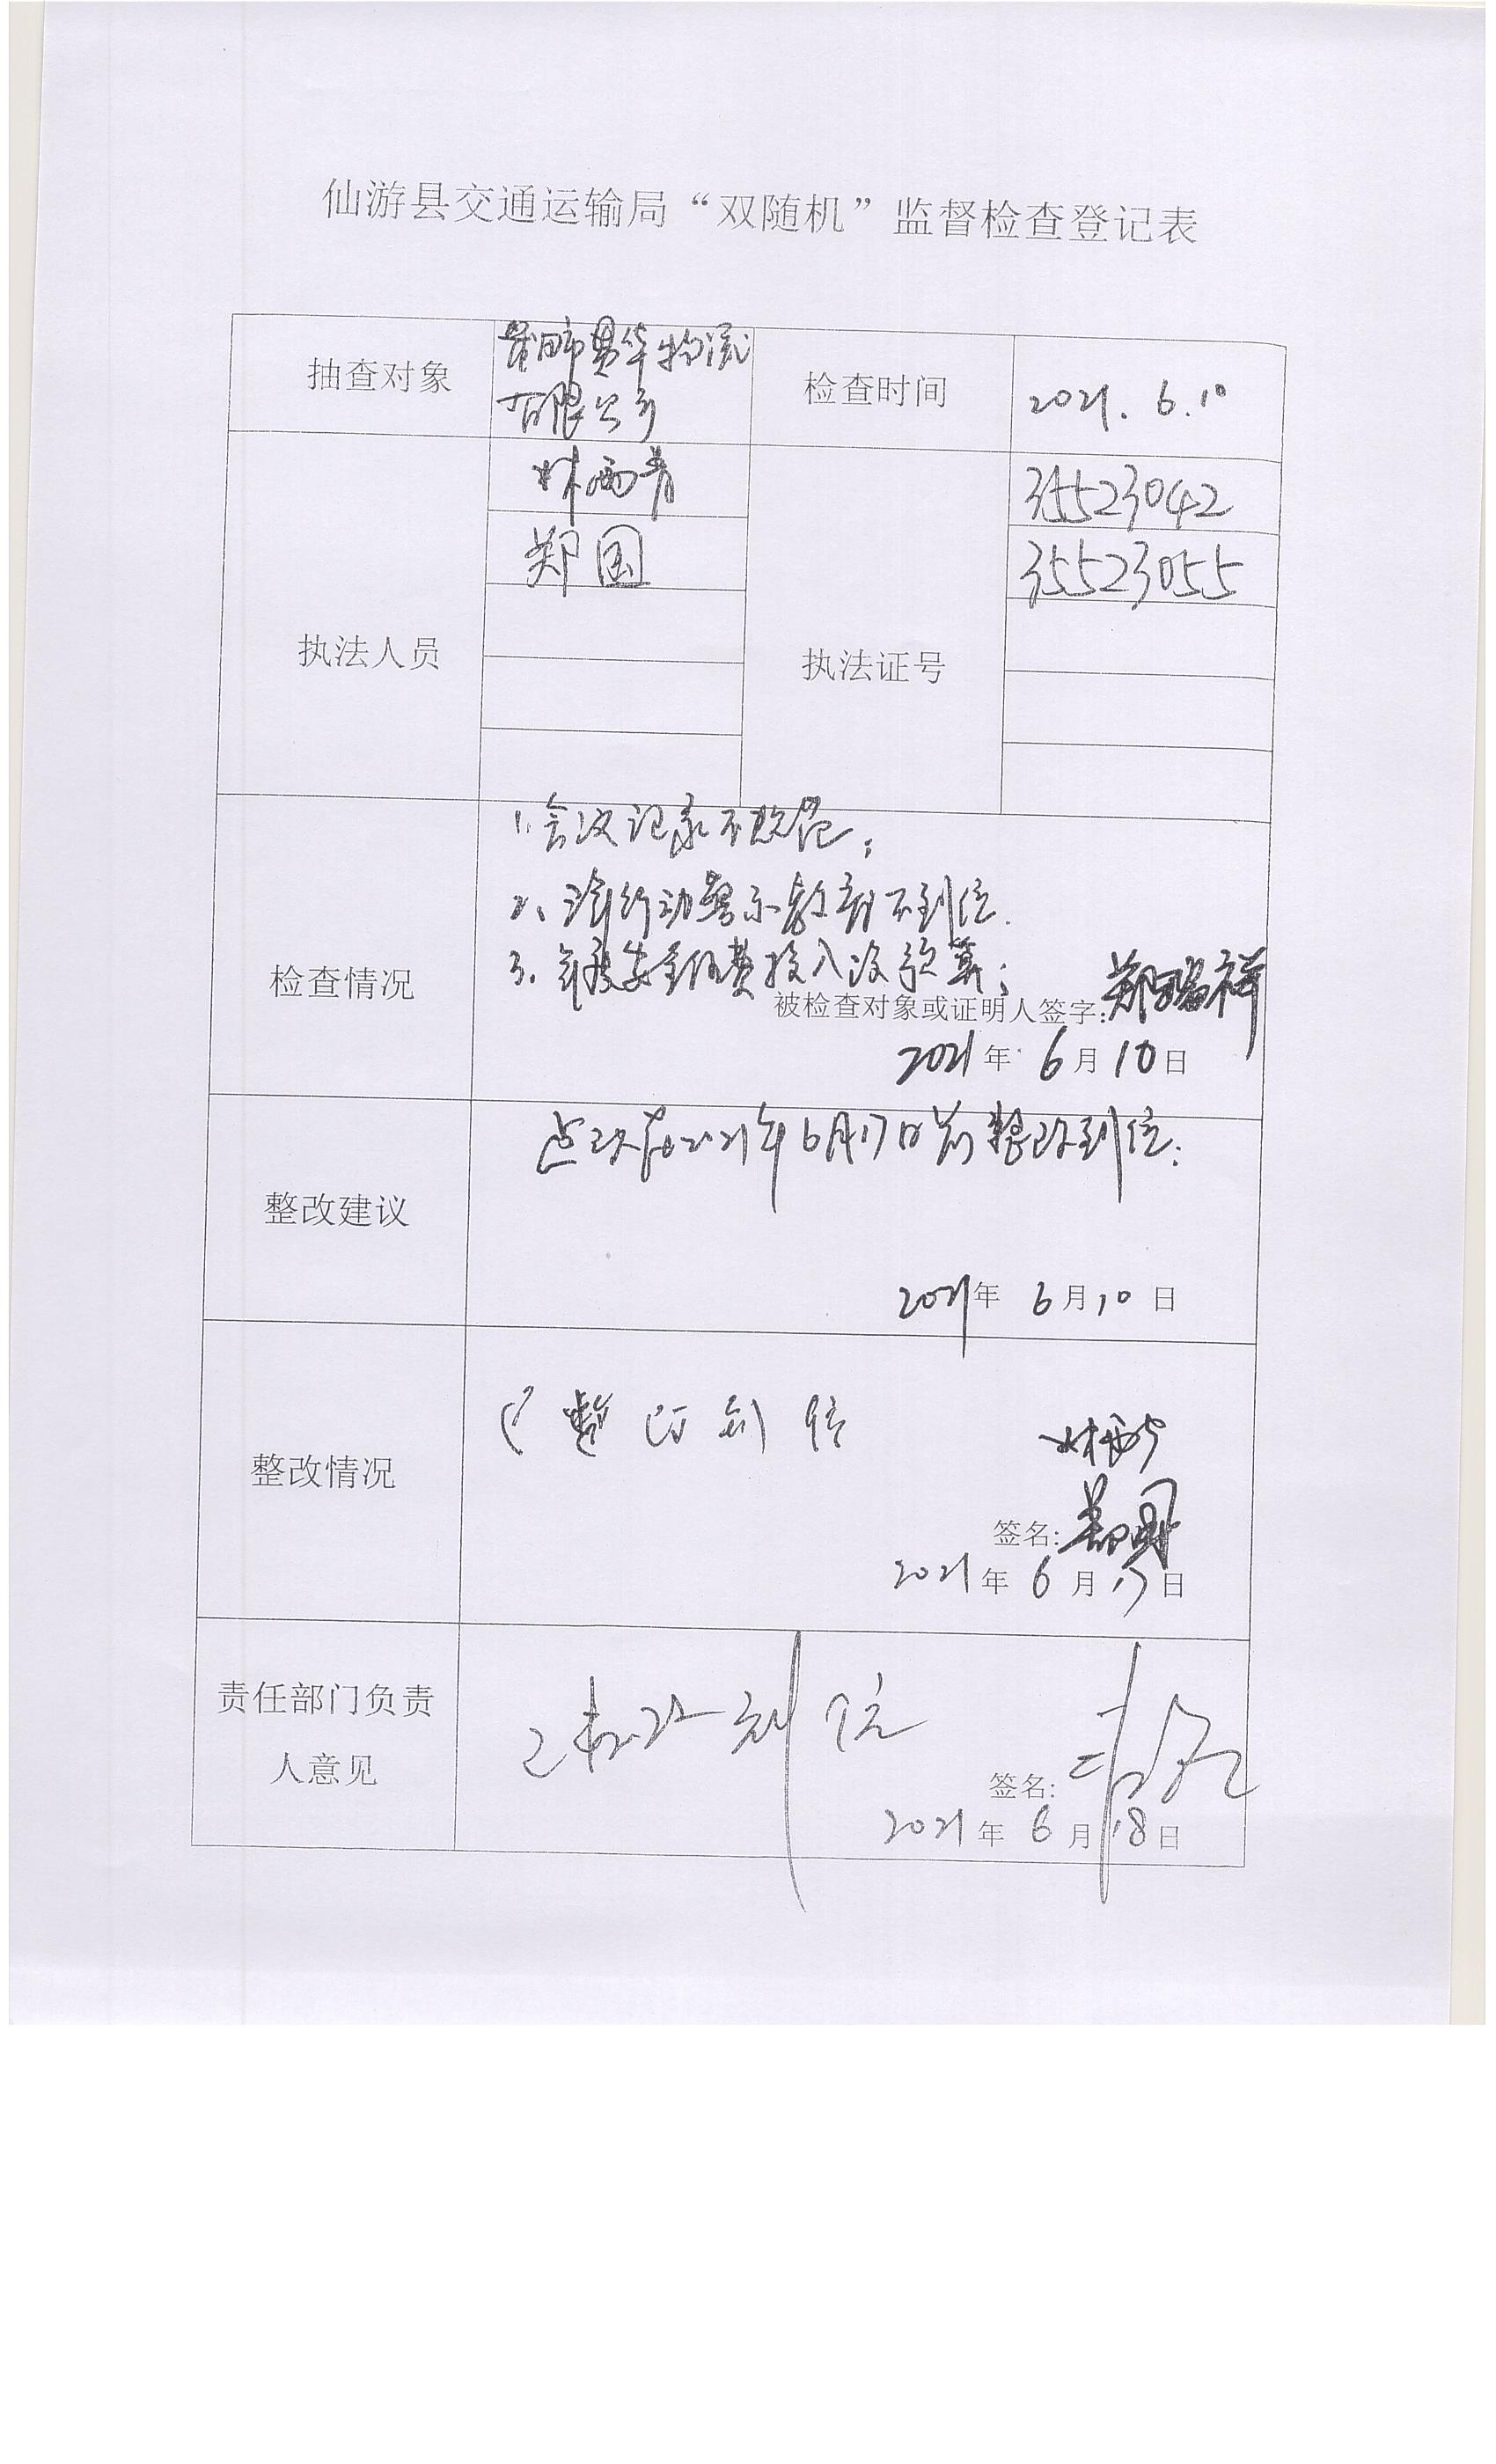 仙游县交通运输局“双随机”监督检查登记表
抽查对象
莆田市易华物流
有限公司
检查时间
2021.6.10
执法人员
林两青
郑国
执法证号
35523042
35523055
检查情况
1.会议记录不规范;
2、行动警示教育不到位.
3.年度安全经费投入没预算;
被检查对象或证明人签字:郑瑞祥
2021年6月10日
整改建议
在2021年6月17日前整改到位;
2021年6月10日
整改情况
已整改到位
签名:郑国
2021年6月17日
责任部门负责
人意见
已整改到位
签名:
2021年6月18日